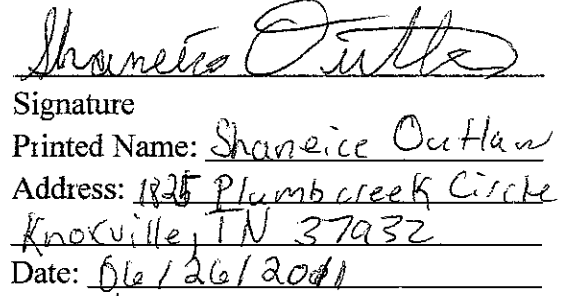 Shaneice Outlaw
Signature
Printed Name: Shaneice Outlaw
Address: 1825 Plumbcreek Circle
Knoxville, TN 37932
Date: 06/26/2011